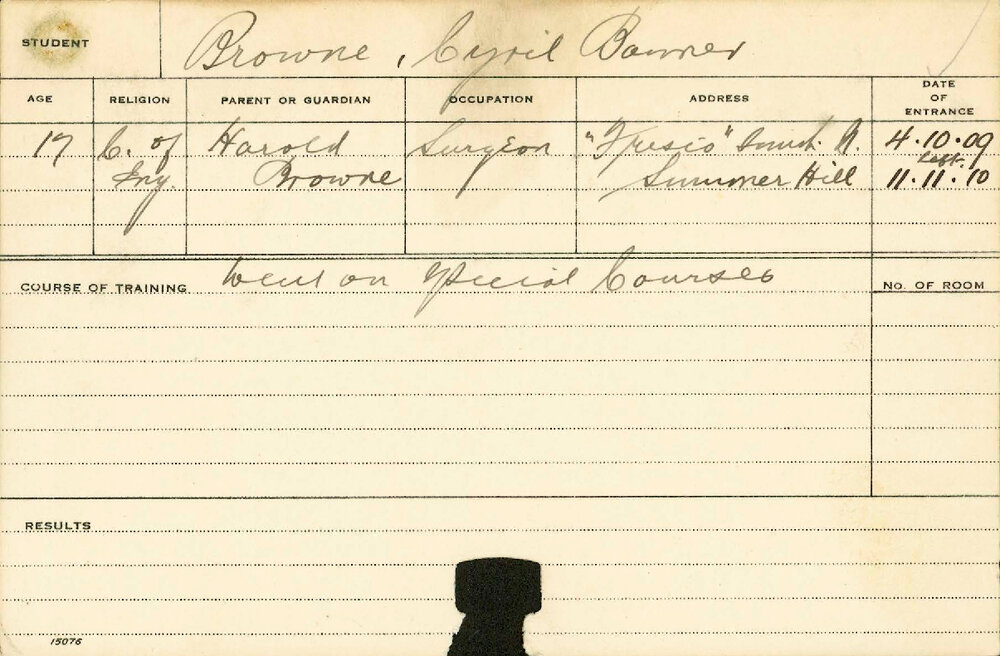 STUDENT Browne, Cyril Banner
AGE RELIGION PARENT OR GUARDIAN OCCUPATION ADDRESS DATE OF ENTRANCE
17 C. of Harold Surgeon 4.10.09
Left.
Eng. Browne Summer Hill 11.11.10
Went on Special Courses
COURSE OF TRAINING No. OF ROOM
RESULTS
15076